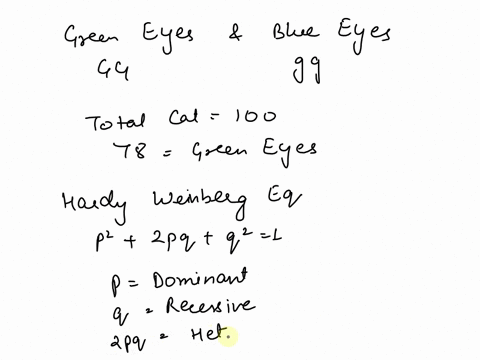 Green Eyes & Blue Eyes
GG gg
Total Cat = 100
78 = Green Eyes
Hardy Weinberg Eq
p² + 2pq + q² = 1
p = Dominant
q = Recessive
2pq = Het.